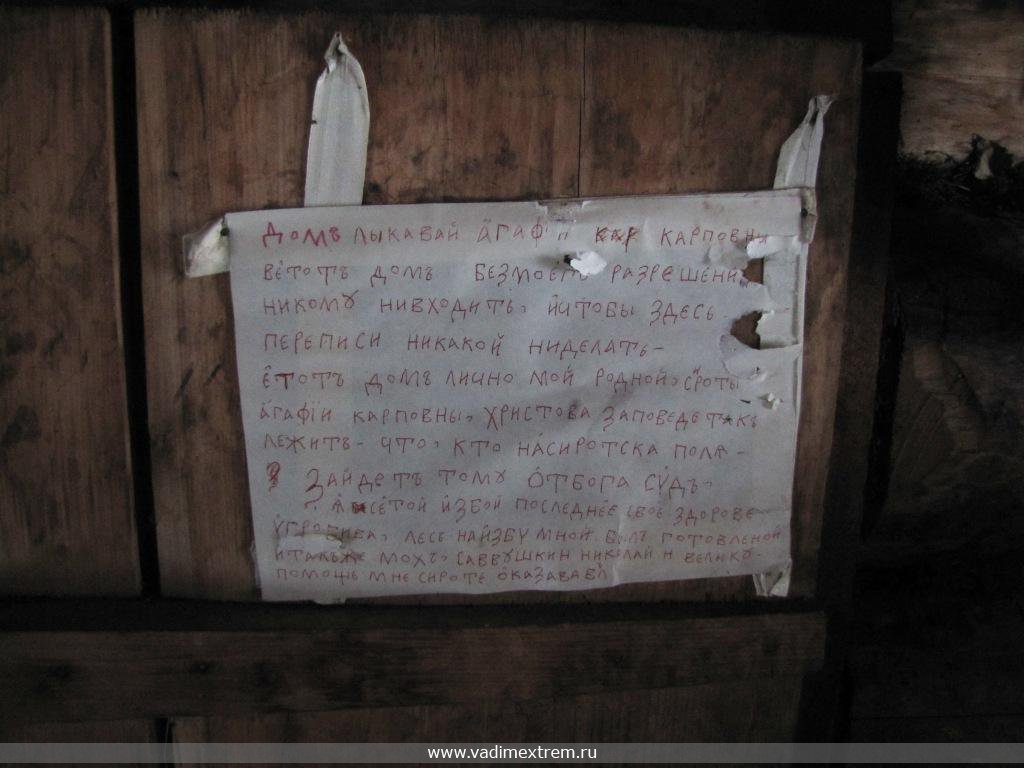 домъ лыкавай а҆гафїи кар карповны
ве҆тотъ домъ безмоего разрешени
никомꙋ нивходить, и҆чтобы здесь
переписи никакой ниделать-
е҆тотъ домъ лично мой родной, сироты
а҆гафїи карповны, христова заповедь такъ
лежитъ- что, кто на́сиротска поля-
зайдетъ томꙋ ѻ҆тбога сꙋ́дъ-
я҆ се҆той и҆збой последнее свое здорове-
ꙋ҆гробива, лесь наи҆збꙋ мной былъ готовленой
и҆такъже мохъ, саввꙋшкин николай н велику-
помощь мне сироте ѻ҆казавал
www.vadimextrem.ru